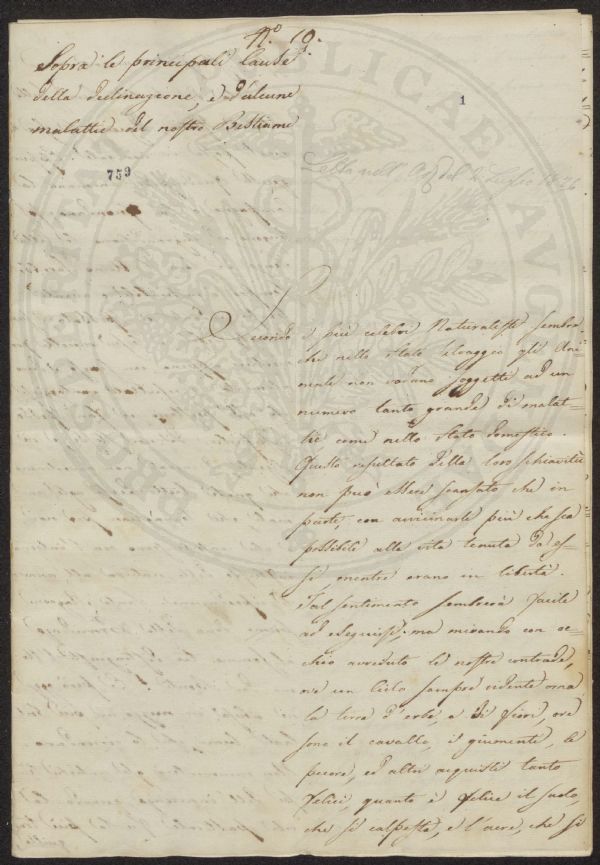 N.º 10.
Sopra le principali cause
della declinazione, e d'alcune
malattie del nostro Bestiame
1
759
Letta nell' del Luglio 1826
Secondo i più celebri Naturalisti sembra
che nello stato selvaggio gli Ani-
mali non vadano soggetti ad un
numero tanto grande di malat-
tie come nello stato domestico.
Questo resultato della loro schiavitù
non può essere scansato che in
parte, con avvicinarli più che sia
possibile alla vita tenuta da es-
si, mentre erano in libertà.
Tal sentimento sembrerà facile
ad eseguirsi; ma mirando con oc-
chio avveduto le nostre contrade,
nè un Cielo sempre ridente orna
la terra d'erbe, e di fiori, ove
sono il cavallo, il giumento, le
pecore, ed altri acquisti tanto
felici, quanto è felice il suolo,
che si calpesta, e l'aere, che si
PUBLICAE
AVG
PROSPERITATI